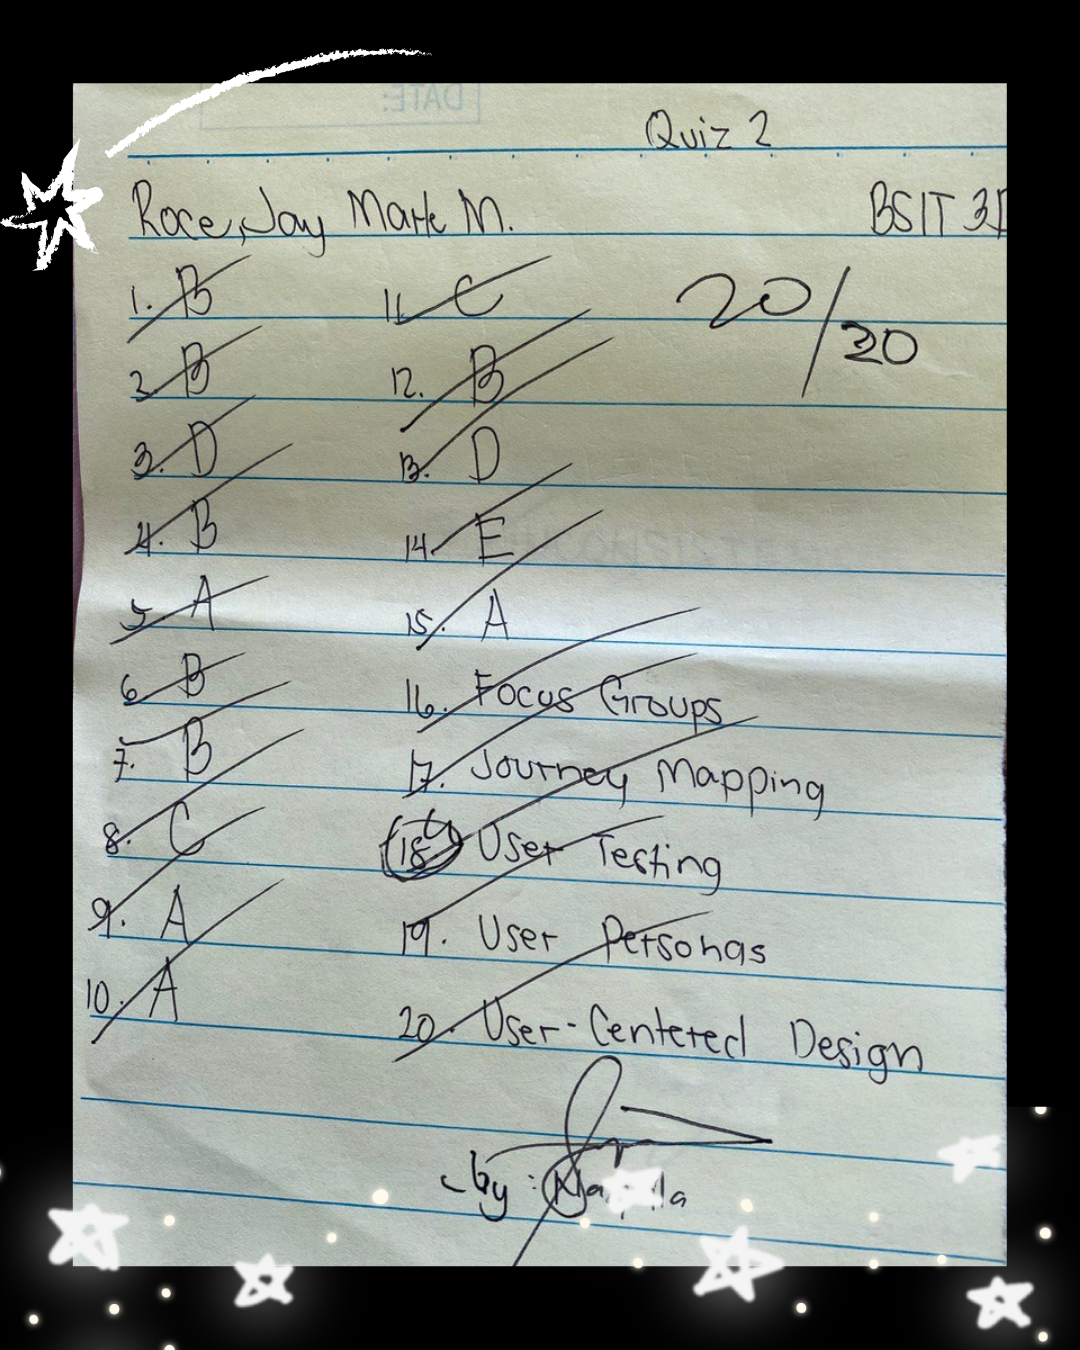 DATE:
Quiz 2
Roce, Jay Mark M. BSIT 3D
20/20
1. B
2. B
3. D
4. B
5. A
6. B
7. B
8. C
9. A
10. A
11. C
12. B
13. D
14. E
15. A
16. Focus Groups
17. Journey Mapping
18. User Testing
19. User Personas
20. User-Centered Design
by: